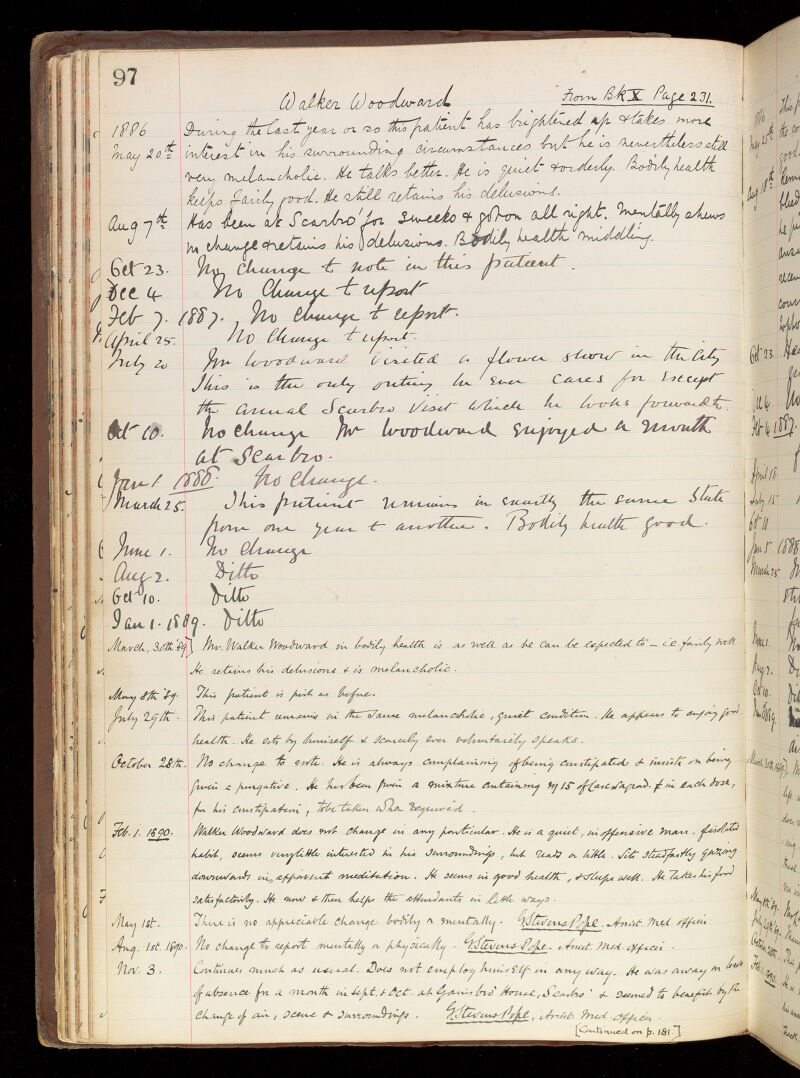 97
Walker Woodward From Bk X Page 231.
1886 During the last year or so this patient has brightened up & takes more
May 20th interest in his surrounding circumstances but he is nevertheless still
very melancholic. He talks better. He is quiet & orderly. Bodily health
keeps fairly good. He still retains his delusions.
Aug 7th Has been at Scarbro' for 3 weeks & got on all right. Mentally shews
no change & retains his delusions. Bodily health middling.
Oct 23. No change to note in this patient.
Dec 4 No Change to report
Feb 7. 1887. No change to report.
April 25. No Change to report.
July 20 Mr Woodward visited a flower show in the City
This is the only outing he ever cares for except
the annual Scarbro visit which he looks forward to.
Oct 10. No change Mr Woodward enjoyed a month
at Scarbro.
Jan 1 1888. No Change.
March 25. This patient remains in exactly the same state
from one year to another. Bodily health good.
June 1. No Change
Aug 2. Ditto
Oct 10. Ditto
Jan 1. 1889. Ditto
March, 30th '89 Mr. Walker Woodward in bodily health is as well as he can be expected to – i.e. fairly well
He retains his delusions & is melancholic.
May 8th '89. This patient is just as before.
July 29th. This patient remains in the same melancholic, quiet condition. He appears to enjoy good
health. He sits by himself & scarcely ever voluntarily speaks.
October 28th. No change to note. He is always complaining of being constipated & insists on being
given a purgative. He has been given a mixture containing ♏15 of Cascara Sagrad. in each dose,
for his constipation, to be taken when required.
Feb. 1. 1890. Walker Woodward does not change in any particular. He is a quiet, inoffensive man of isolated
habit, seems very little interested in his surroundings, but reads a little. Sits steadfastly gazing
downwards in apparent meditation. He seems in good health, & sleeps well. He takes his food
satisfactorily. He now & then helps the attendants in little ways.
May 1st. There is no appreciable change bodily or mentally. G Stevens Pope. Assist. Med. officer
Aug. 1st. 1890. No change to report mentally or physically. G Stevens Pope. Assist. Med. officer.
Nov. 3. Continues much as usual. Does not employ himself in any way. He was away on leave
of absence for a month in Sept. & Oct. at Gainsbro' House, Scarbro' & seemed to benefit by the
change of air, scene & surroundings. G Stevens Pope, Assist. Med. Officer.
[Continued on p. 181.]